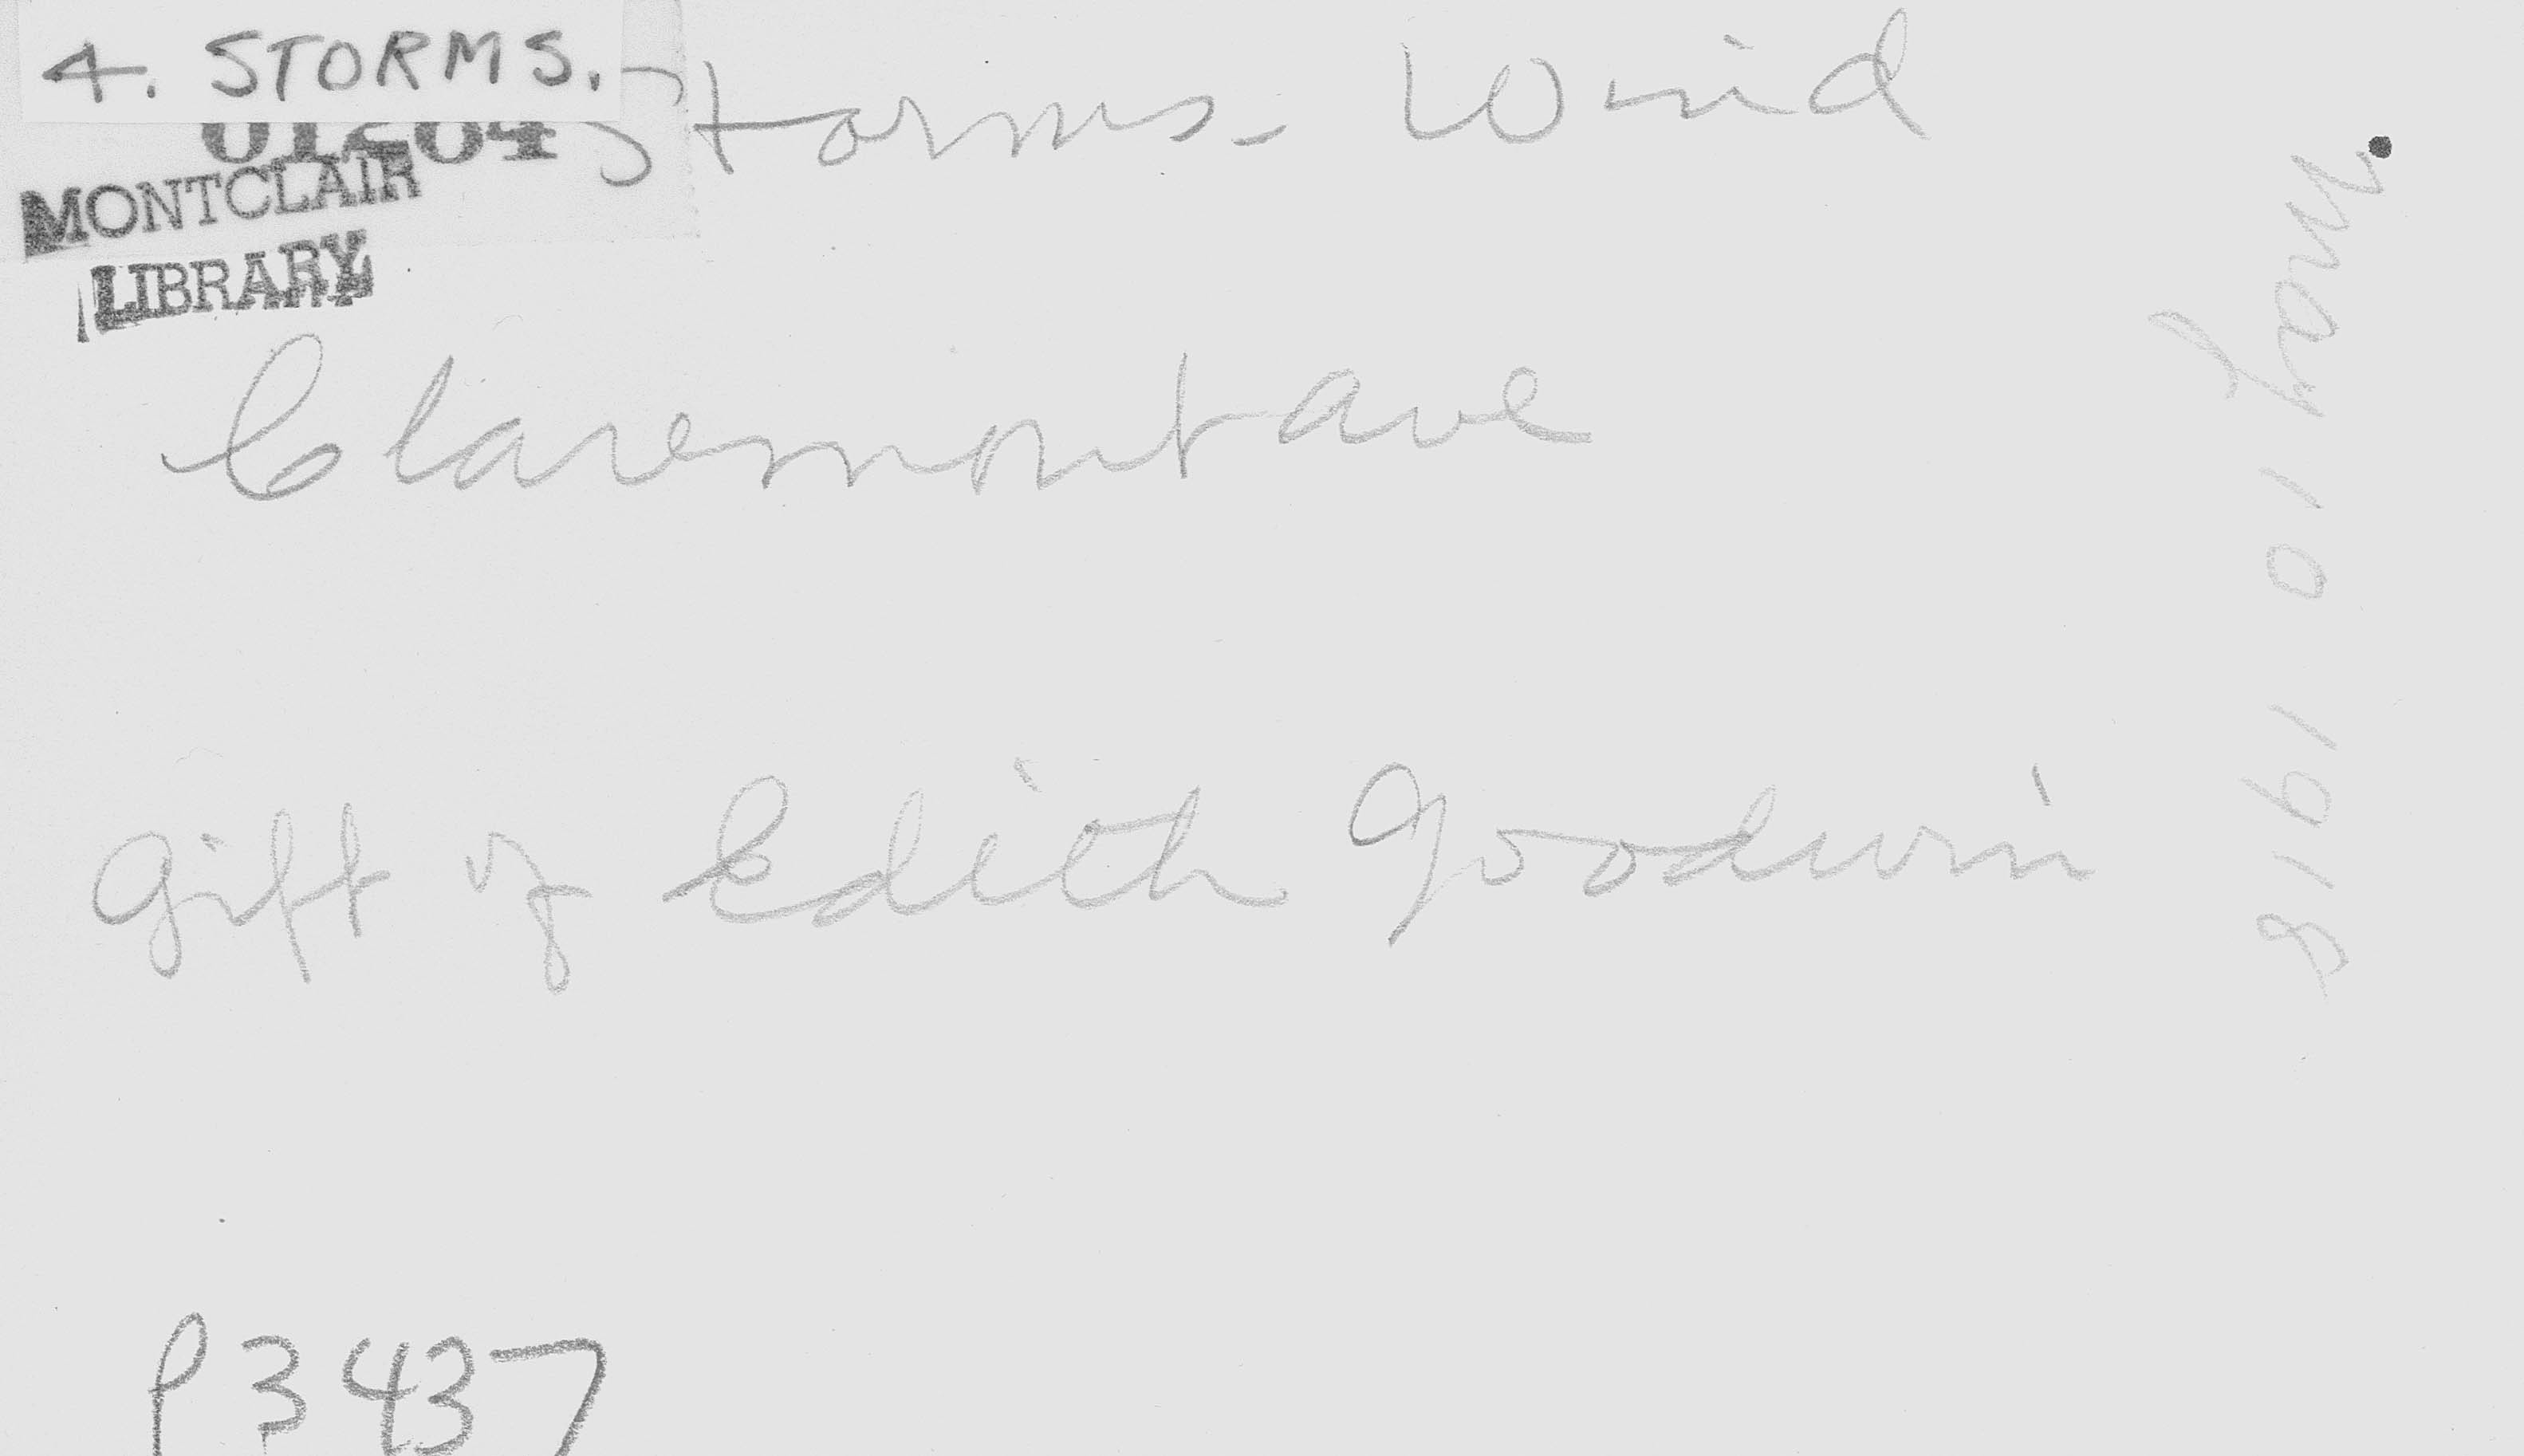 4. STORMS.
Storms - Wind
MONTCLAIR
LIBRARY
Claremont ave
Gift of Edith Goodwin
May 10 1918
P3437